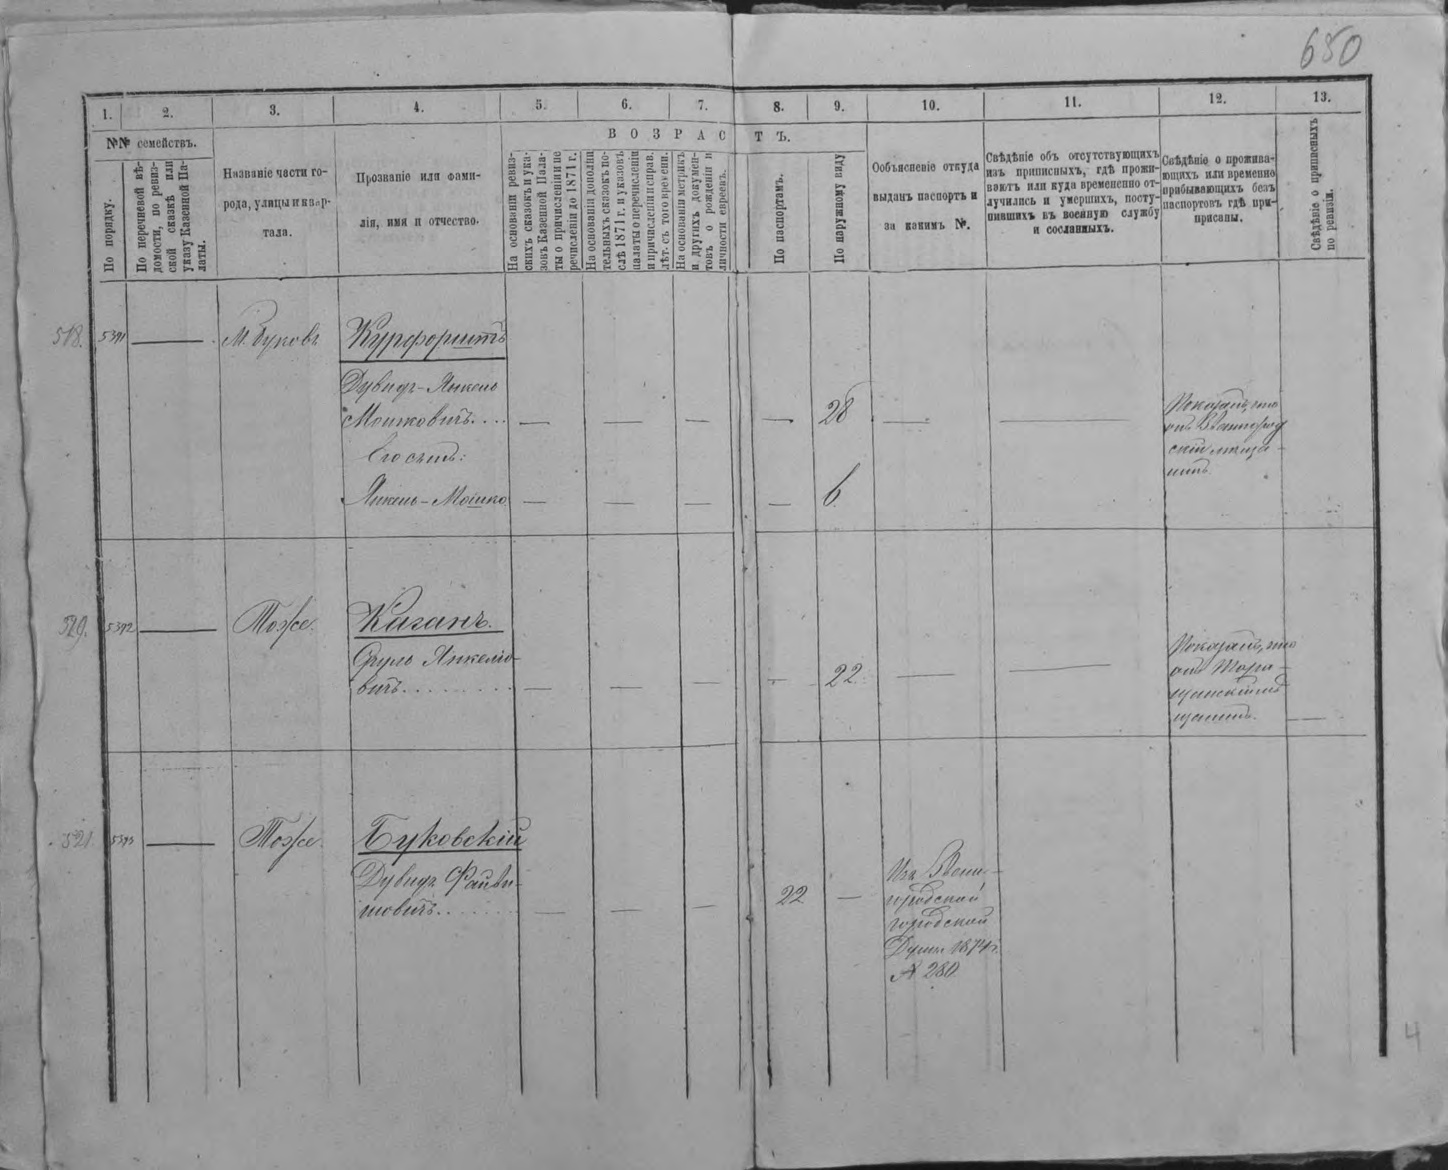 650
1. 2. 3. 4. 5. 6. 7. 8. 9. 10. 11. 12. 13.
№№ семействъ.
В О З Р А С Т Ъ.
По порядку.
По перечневой вѣ-
домости, по ревиз-
ской сказкѣ или
указу Казенной Па-
латы.
Названіе части го-
рода, улицы и квар-
тала.
Прозваніе или фами-
лія, имя и отчество.
На основаніи ревиз-
скихъ сказокъ и ука-
зовъ Казенной Пала-
ты о причисленіи и пе
речисленіи до 1871 г.
На основаніи дополни
тельныхъ сказокъ по-
слѣ 1871 г. и указовъ
палаты о перечисленіи
и причисленіи и справ.
лѣт. съ того времени.
На основаніи метрикъ
и другихъ докумен-
товъ о рожденіи и
личности евреевъ.
По паспортамъ.
По наружному виду
Объясненіе откуда
выданъ паспортъ и
за какимъ №.
Свѣдѣніе объ отсутствующихъ
изъ приписныхъ, гдѣ прожи-
ваютъ или куда временно от-
лучились и умершихъ, посту-
пившихъ въ военную службу
и сосланныхъ.
Свѣдѣніе о прожива-
ющихъ или временно
прибывающихъ безъ
паспортовъ гдѣ при-
присаны.
Свѣдѣніе о приписныхъ
по ревизіи.
518. 5391 — М. Буковъ Курфоришъ
Дувидъ-Янкель
Мошковичъ.... — — — — 28 — — Показалъ, что
онъ Звенигород
скій мѣща-
нинъ.
Его сынъ:
Янкель-Мошко — — — — 6
519. 5392 — Тоже. Каганъ.
Сруль Янкеліо-
вичъ........ — — — — 22 — — Показалъ, что
онъ Тара-
щанскій мѣ
щанинъ. —
521. 5393 — Тоже. Буковскій
Дувидъ Файви-
шовичъ....... — — — 22 — Изъ Звени-
городской
городской
Думы 1874 г.
№ 280
4